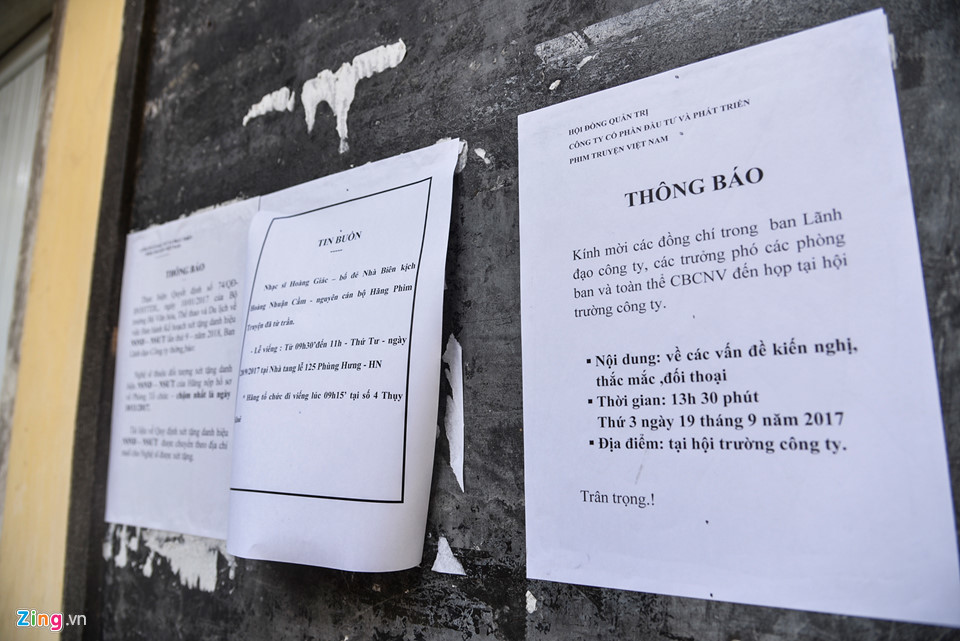 THÔNG BÁO
Thực hiện Quyết định số 74/QĐ-
Nghệ sĩ thuộc đối tượng xét tặng danh
hiệu NSND – NSƯT của Hãng nộp hồ sơ
về Phòng Tổ chức – chậm nhất là ngày
Tài liệu về Quy định xét tặng danh hiệu
NSND – NSƯT được chuyển theo địa chỉ
mail cho Nghệ sĩ được xét tặng.
TIN BUỒN
Nhạc sĩ Hoàng Giác – bố đẻ Nhà Biên kịch
Hoàng Nhuận Cầm – nguyên cán bộ Hãng Phim
Truyện đã từ trần.
- Lễ viếng : Từ 09h30' đến 11h - Thứ Tư - ngày
20/9/2017 tại Nhà tang lễ 125 Phùng Hưng - HN
* Hãng tổ chức đi viếng lúc 09h15' tại số 4 Thụy
Khuê
HỘI ĐỒNG QUẢN TRỊ
CÔNG TY CỔ PHẦN ĐẦU TƯ VÀ PHÁT TRIỂN
PHIM TRUYỆN VIỆT NAM
THÔNG BÁO
Kính mời các đồng chí trong ban Lãnh
đạo công ty, các trưởng phó các phòng
ban và toàn thể CBCNV đến họp tại hội
trường công ty.
▪ Nội dung: về các vấn đề kiến nghị,
thắc mắc ,đối thoại
▪ Thời gian: 13h 30 phút
Thứ 3 ngày 19 tháng 9 năm 2017
▪ Địa điểm: tại hội trường công ty.
Trân trọng.!
Zing.vn